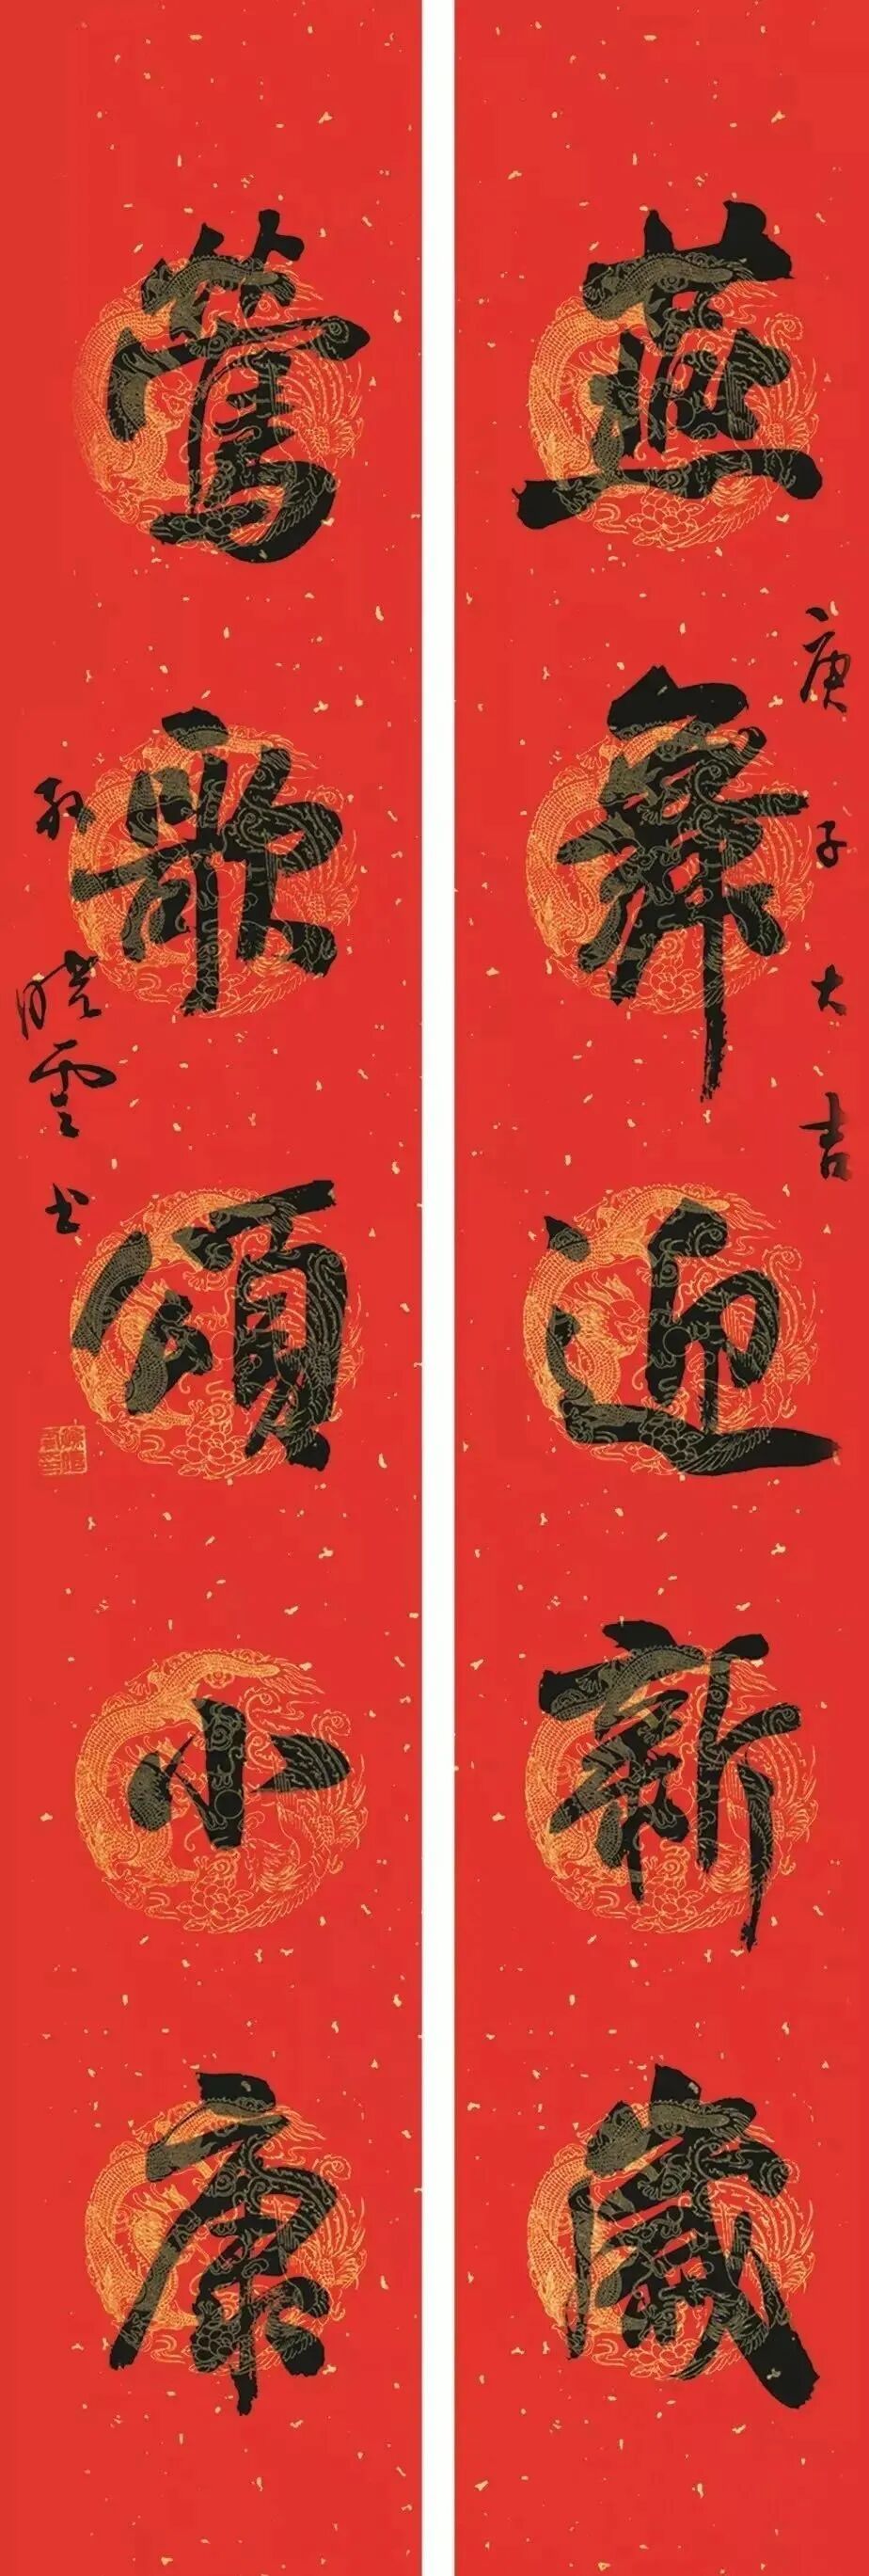 燕舞迎新歲
庚子大吉
鶯歌頌小康
晓雲书